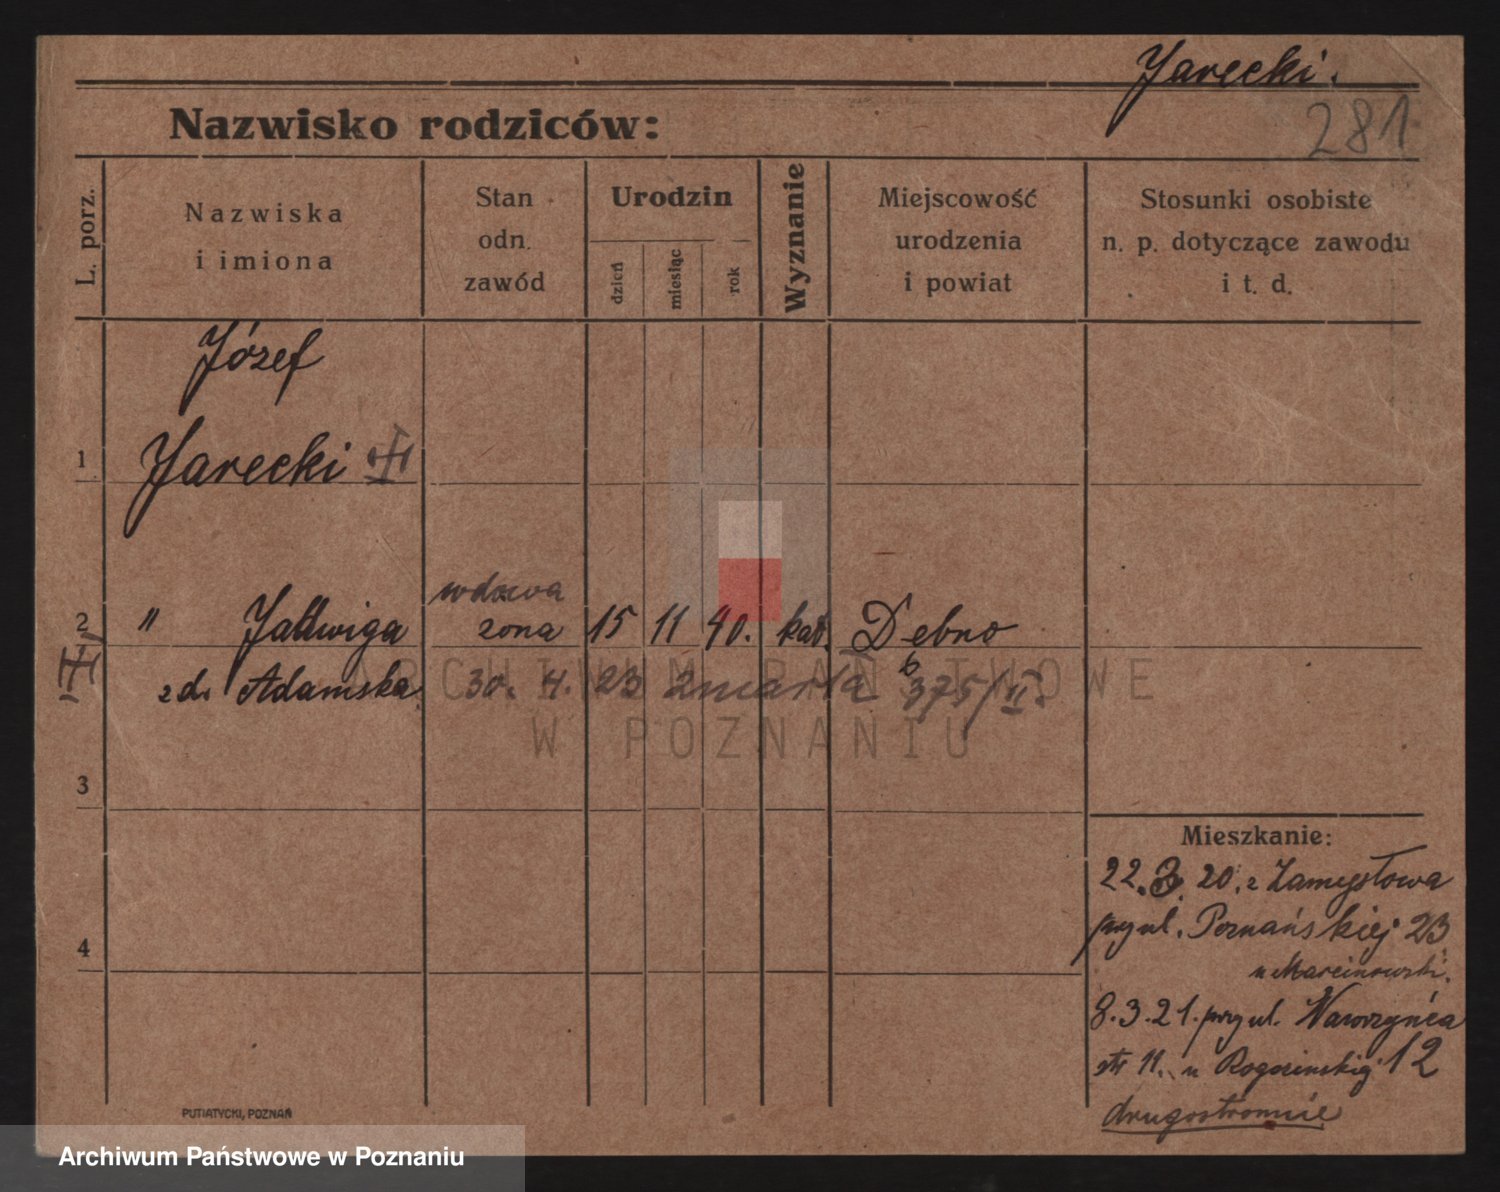 Jarecki.
281
Nazwisko rodziców:
L. porz.
Nazwiska
i imiona
Stan
odn.
zawód
Urodzin
dzień
miesiąc
rok
Wyznanie
Miejscowość
urodzenia
i powiat
Stosunki osobiste
n. p. dotyczące zawodu
i t. d.
Józef
1 Jarecki
wdowa
2 " Jadwiga żona 15 11 40. kat. Debno
z d. Adamska 30. 4. 23 zmarła 375/II.
ARCHIWUM PAŃSTWOWE
W POZNANIU
3
Mieszkanie:
22.3.20. z Zamysłowa
przy ul. Poznańskiej 23
u Marcinowski.
4
8.3.21. przy ul. Wawrzyńca
11. u Rogozinskiej 12
drugostronnie
PUTIATYCKI, POZNAŃ
Archiwum Państwowe w Poznaniu